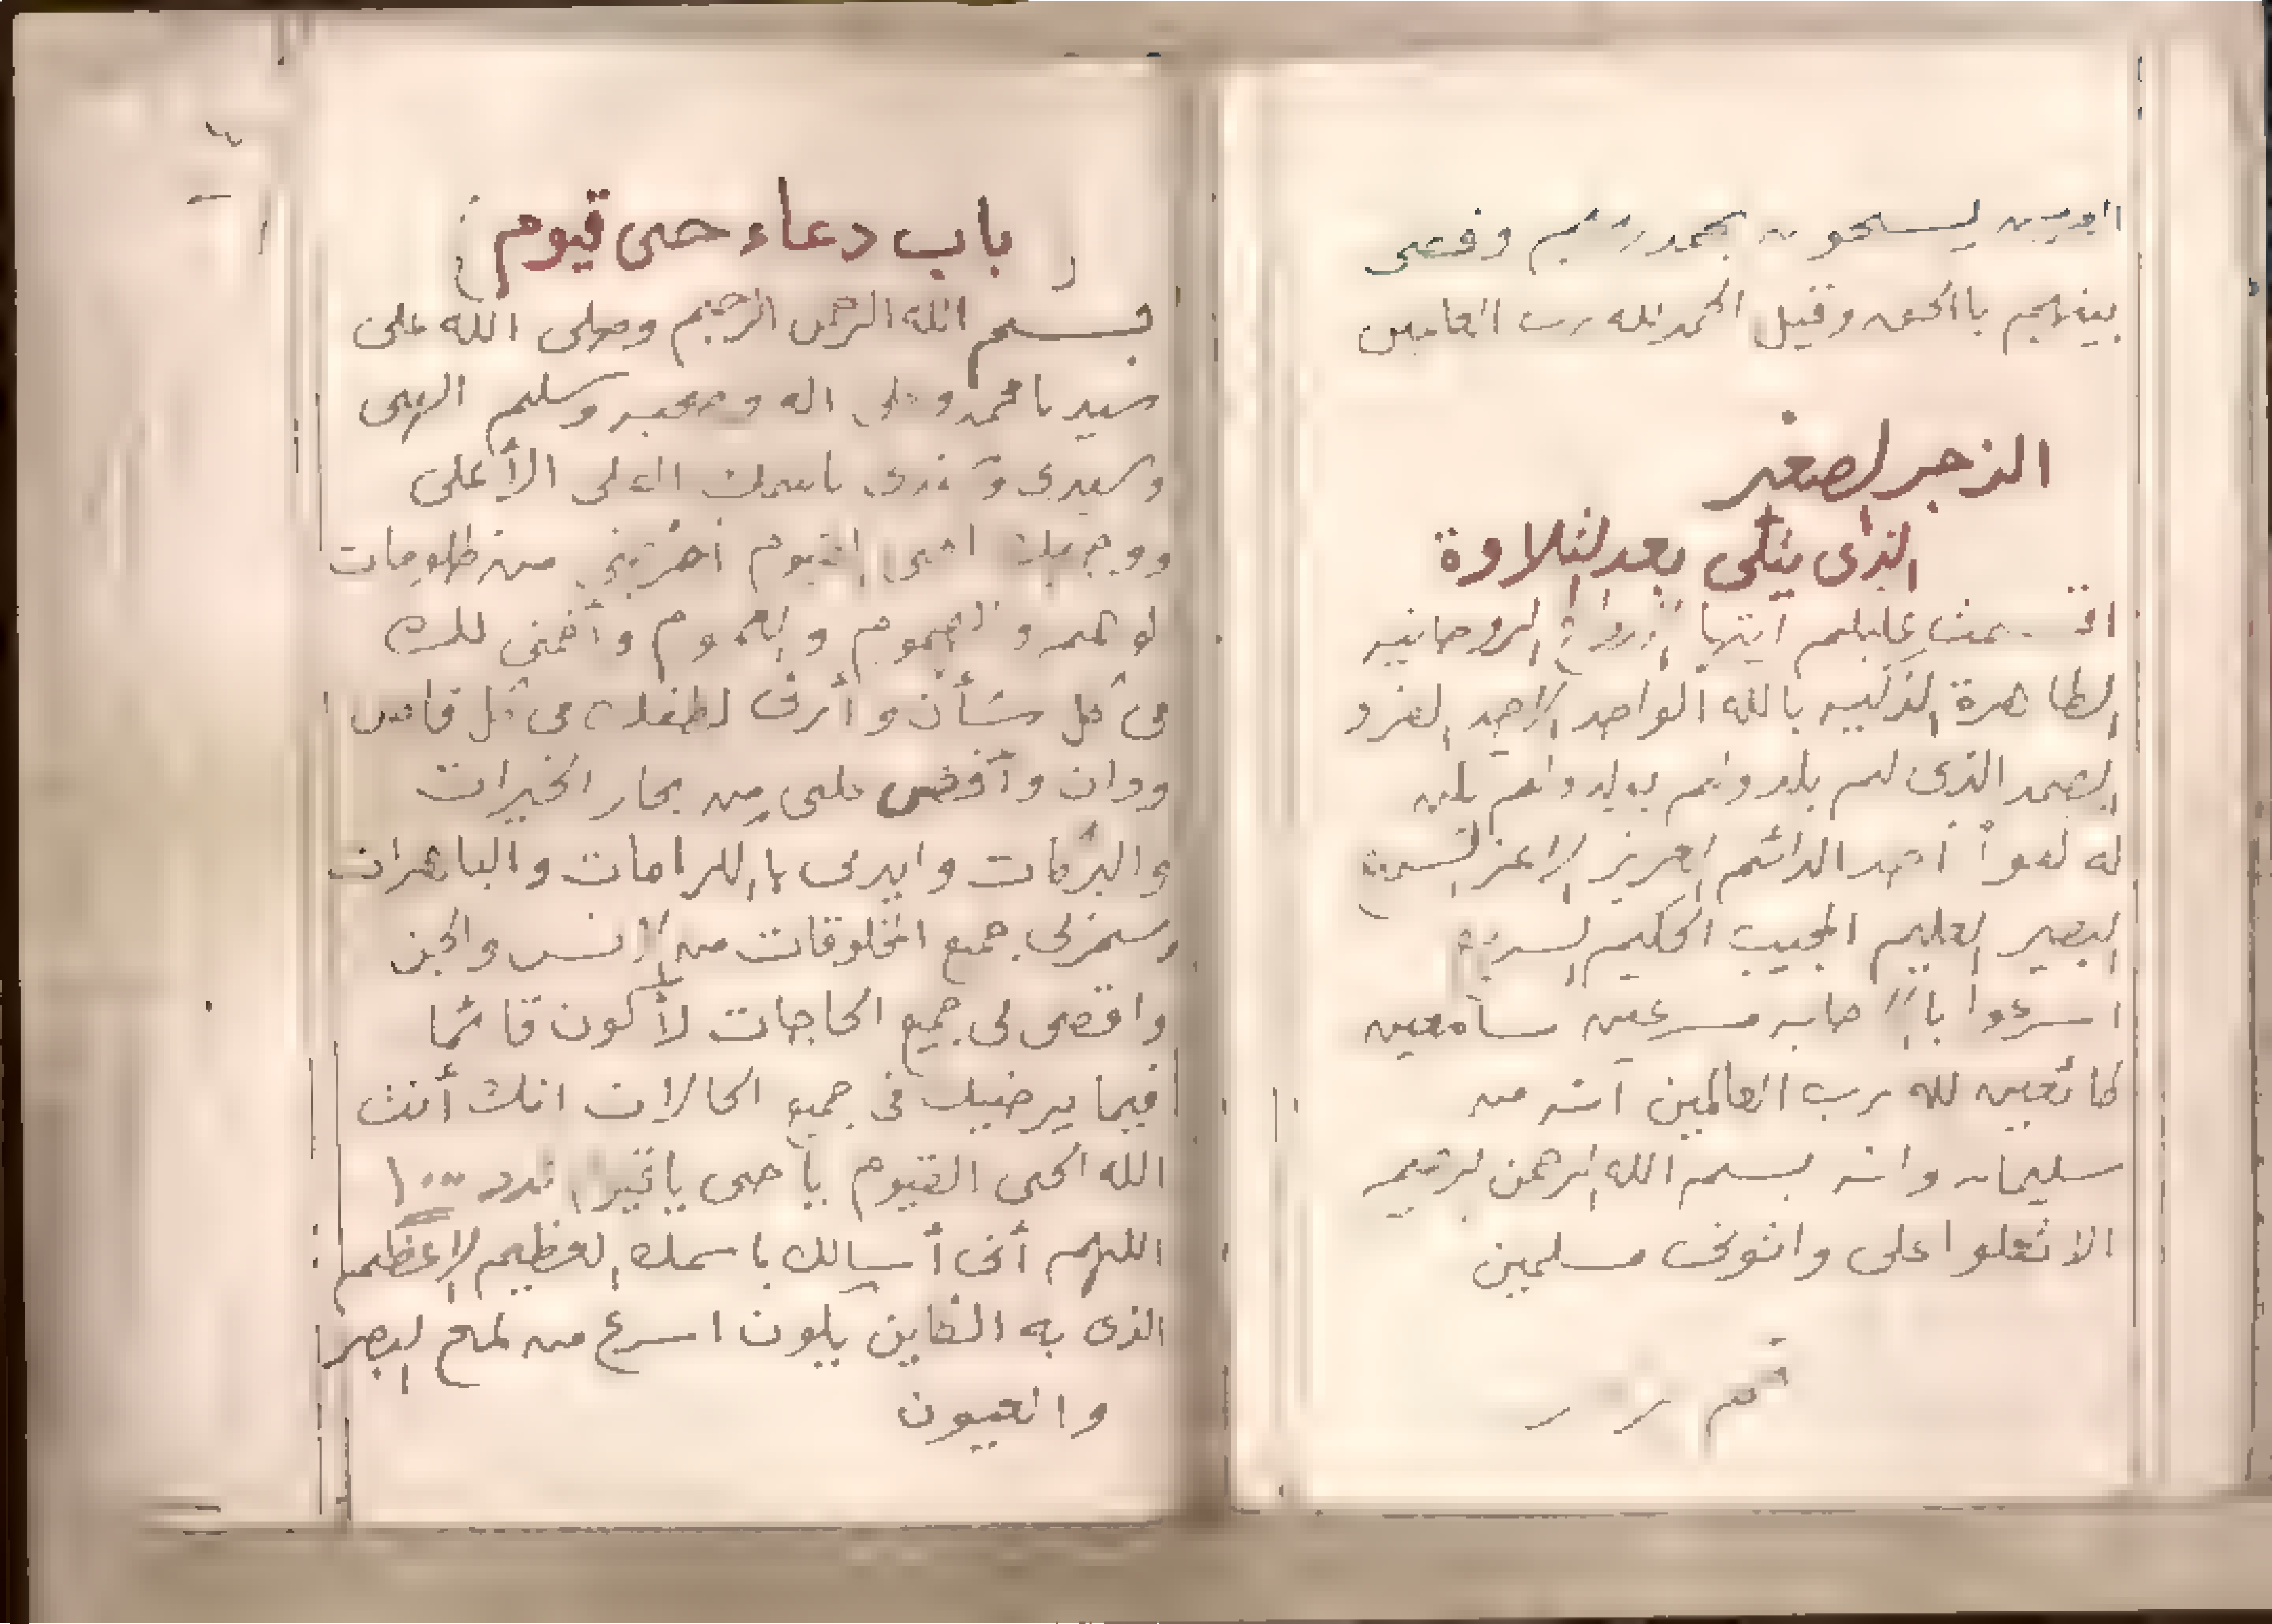 يسبحون بحمد ربهم وقضى
بينهم باالحق وقيل الحمد لله رب العالمين
الزجر الصغير
الذى يتلى بعد التلاوة
عليكم ايتها الروحانيه
الطاهرة الزكيه بالله الواحد الاحد الفرد
الصمد الذى لم يلد ولم يولد ولم يكن
له كفواً احد الدائم العزيز الاعز
البصير العليم المجيب الحكيم السريع
اسرعوا مسرعين سامعين
طائعين لله رب العالمين انه من
سليمان وانه بسم الله الرحمن الرحيم
الا تعلوا على واتونى مسلمين
باب دعاء حى قيوم
بسم الله الرحمن الرحيم وصلى الله على
سيدنا محمد وعلى اله وصحبه وسلم الهى
وسيدى وسندى باسمك العلى الأعلى
القيوم من ظلومات
الوهم والهموم والغموم وأفهمنى
فى كل شأن وأرنى لطفك فى كل قاص
ودان وأفض على من بحار الخيرات
والبركات وايدنى باالكرامات والباهرات
وسخرلى جميع المخلوقات من الانس والجن
واقضى لى جميع الحاجات لأكون قائما
فيما يرضيك فى جميع الحالات انك أنت
الله الحى القيوم يا حى يا قيوم عدد ١٠٠٠
اللهم أنى أسالك باسمك العظيم الاعظم
الذى به الكاين يكون اسرع من لمح البصر
والعيون